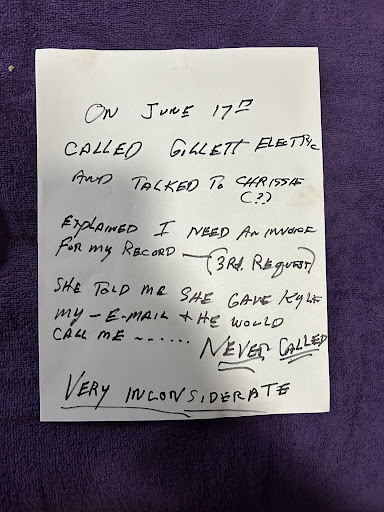 ON JUNE 17TH
CALLED GILLETT ELECTRIC
AND TALKED TO CHRISSIE
(??)
EXPLAINED I NEED AN INVOICE
FOR MY RECORD — (3RD. REQUEST)
SHE TOLD ME SHE GAVE KYLE
MY - E-MAIL + HE WOULD
CALL ME ~......
NEVER CALLED
VERY INCONSIDERATE